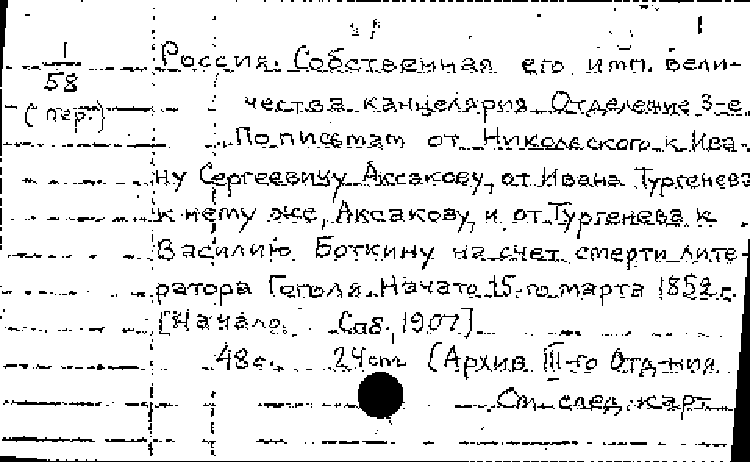 1
58
(пер.)
Россия. Собственная его имп. вели-
чества канцелярия. Отделение 3-е.
По письмам от Никольского к Ива-
ну Сергеевичу Аксакову, от Ивана Тургенева
к нему же, Аксакову, и от Тургенева к
Василию Боткину на счет смерти лите-
ратора Гоголя. Начато 15-го марта 1852 г.
[Начало. Спб., 1907]
48 с. 24 cm (Архив III-го Отд-ния
См. след. карт.